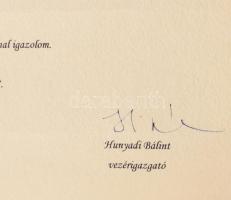 nal igazolom.
darabanth
Hunyadi Bálint
vezérigazgató